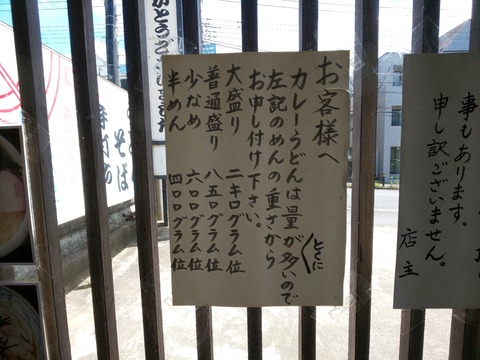 お客様へ
カレーうどんは量がとくに多いので
左記のめんの重さから
お申し付け下さい。
大盛り 二キログラム位
普通盛り 八五〇グラム位
少なめ 六〇〇グラム位
半めん 四〇〇グラム位
事もあります。
申し訳ございません。
店主
がとうございました
そば
手打ち